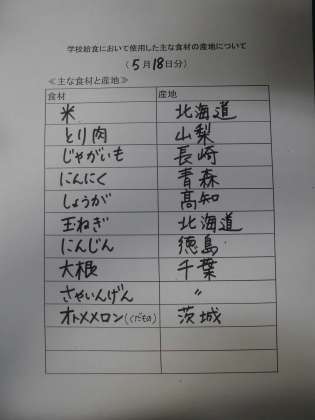 学校給食において使用した主な食材の産地について
（5月18日分）
≪主な食材と産地≫
食材 産地
米 北海道
とり肉 山梨
じゃがいも 長崎
にんにく 青森
しょうが 高知
玉ねぎ 北海道
にんじん 徳島
大根 千葉
さやいんげん 〃
オトメメロン(くだもの) 茨城